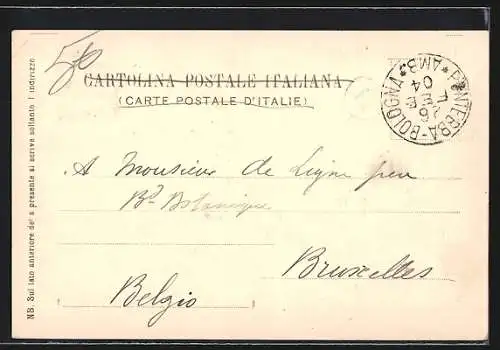 CARTOLINA POSTALE ITALIANA
(CARTE POSTALE D'ITALIE)
PONTEBBA-BOLOGNA * AMB *
26 FEB 04
A Monsieur de Ligne
Bd Botanique
Bruxelles
Belgio
NB. Sul lato anteriore del a presente si scrive soltanto l indirizzo